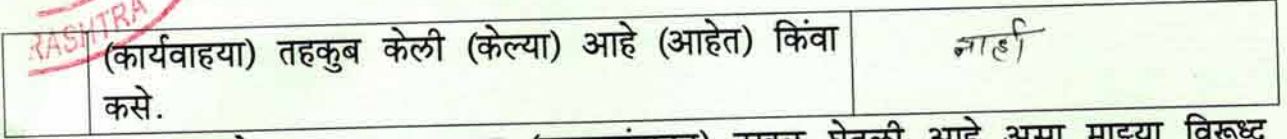 RASHTRA
(कार्यवाहया) तहकुब केली (केल्या) आहे (आहेत) किंवा नाही
कसे.
घेतली आहे असा माझ्या विरूध्द